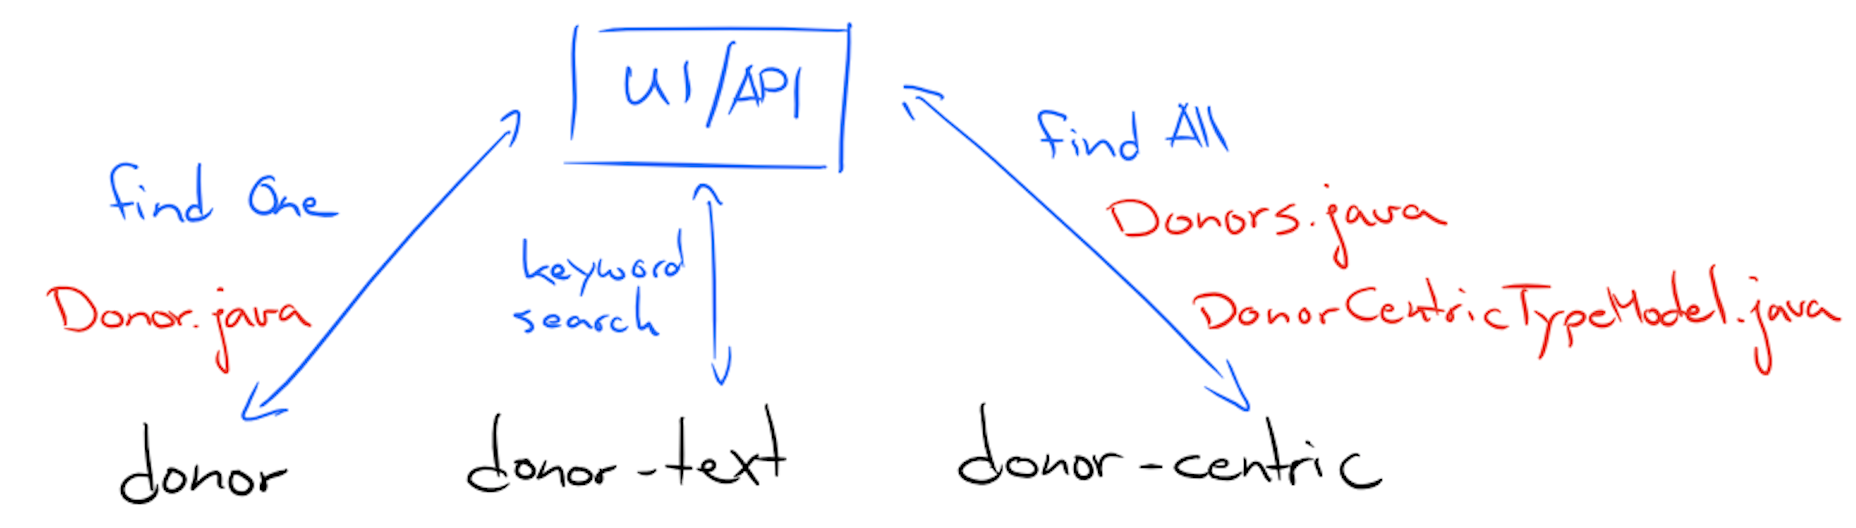 UI/API
find All
find One
Donors.java
keyword
search
Donor.java
DonorCentricTypeModel.java
donor
donor-text
donor-centric